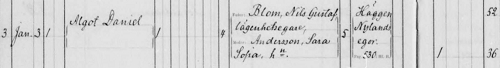 Blom, Nils Gustaf, Häggen 52
3 Jan. 3 1 Algot Daniel 1 4 lägenhetsegare, 5 Nylands
Andersson, Sara egor.
Sofia, hu. 530. 1 36